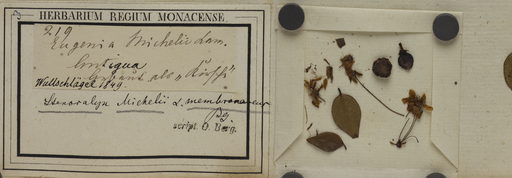 HERBARIUM REGIUM MONACENSE.
219
Eugenia Michelii Lam.
Antigua
bekannt als „Kirsche"
Wullschlägel 1849.
Stenocalyx Michelii d. membranaceus
Bg.
script. O. Berg.